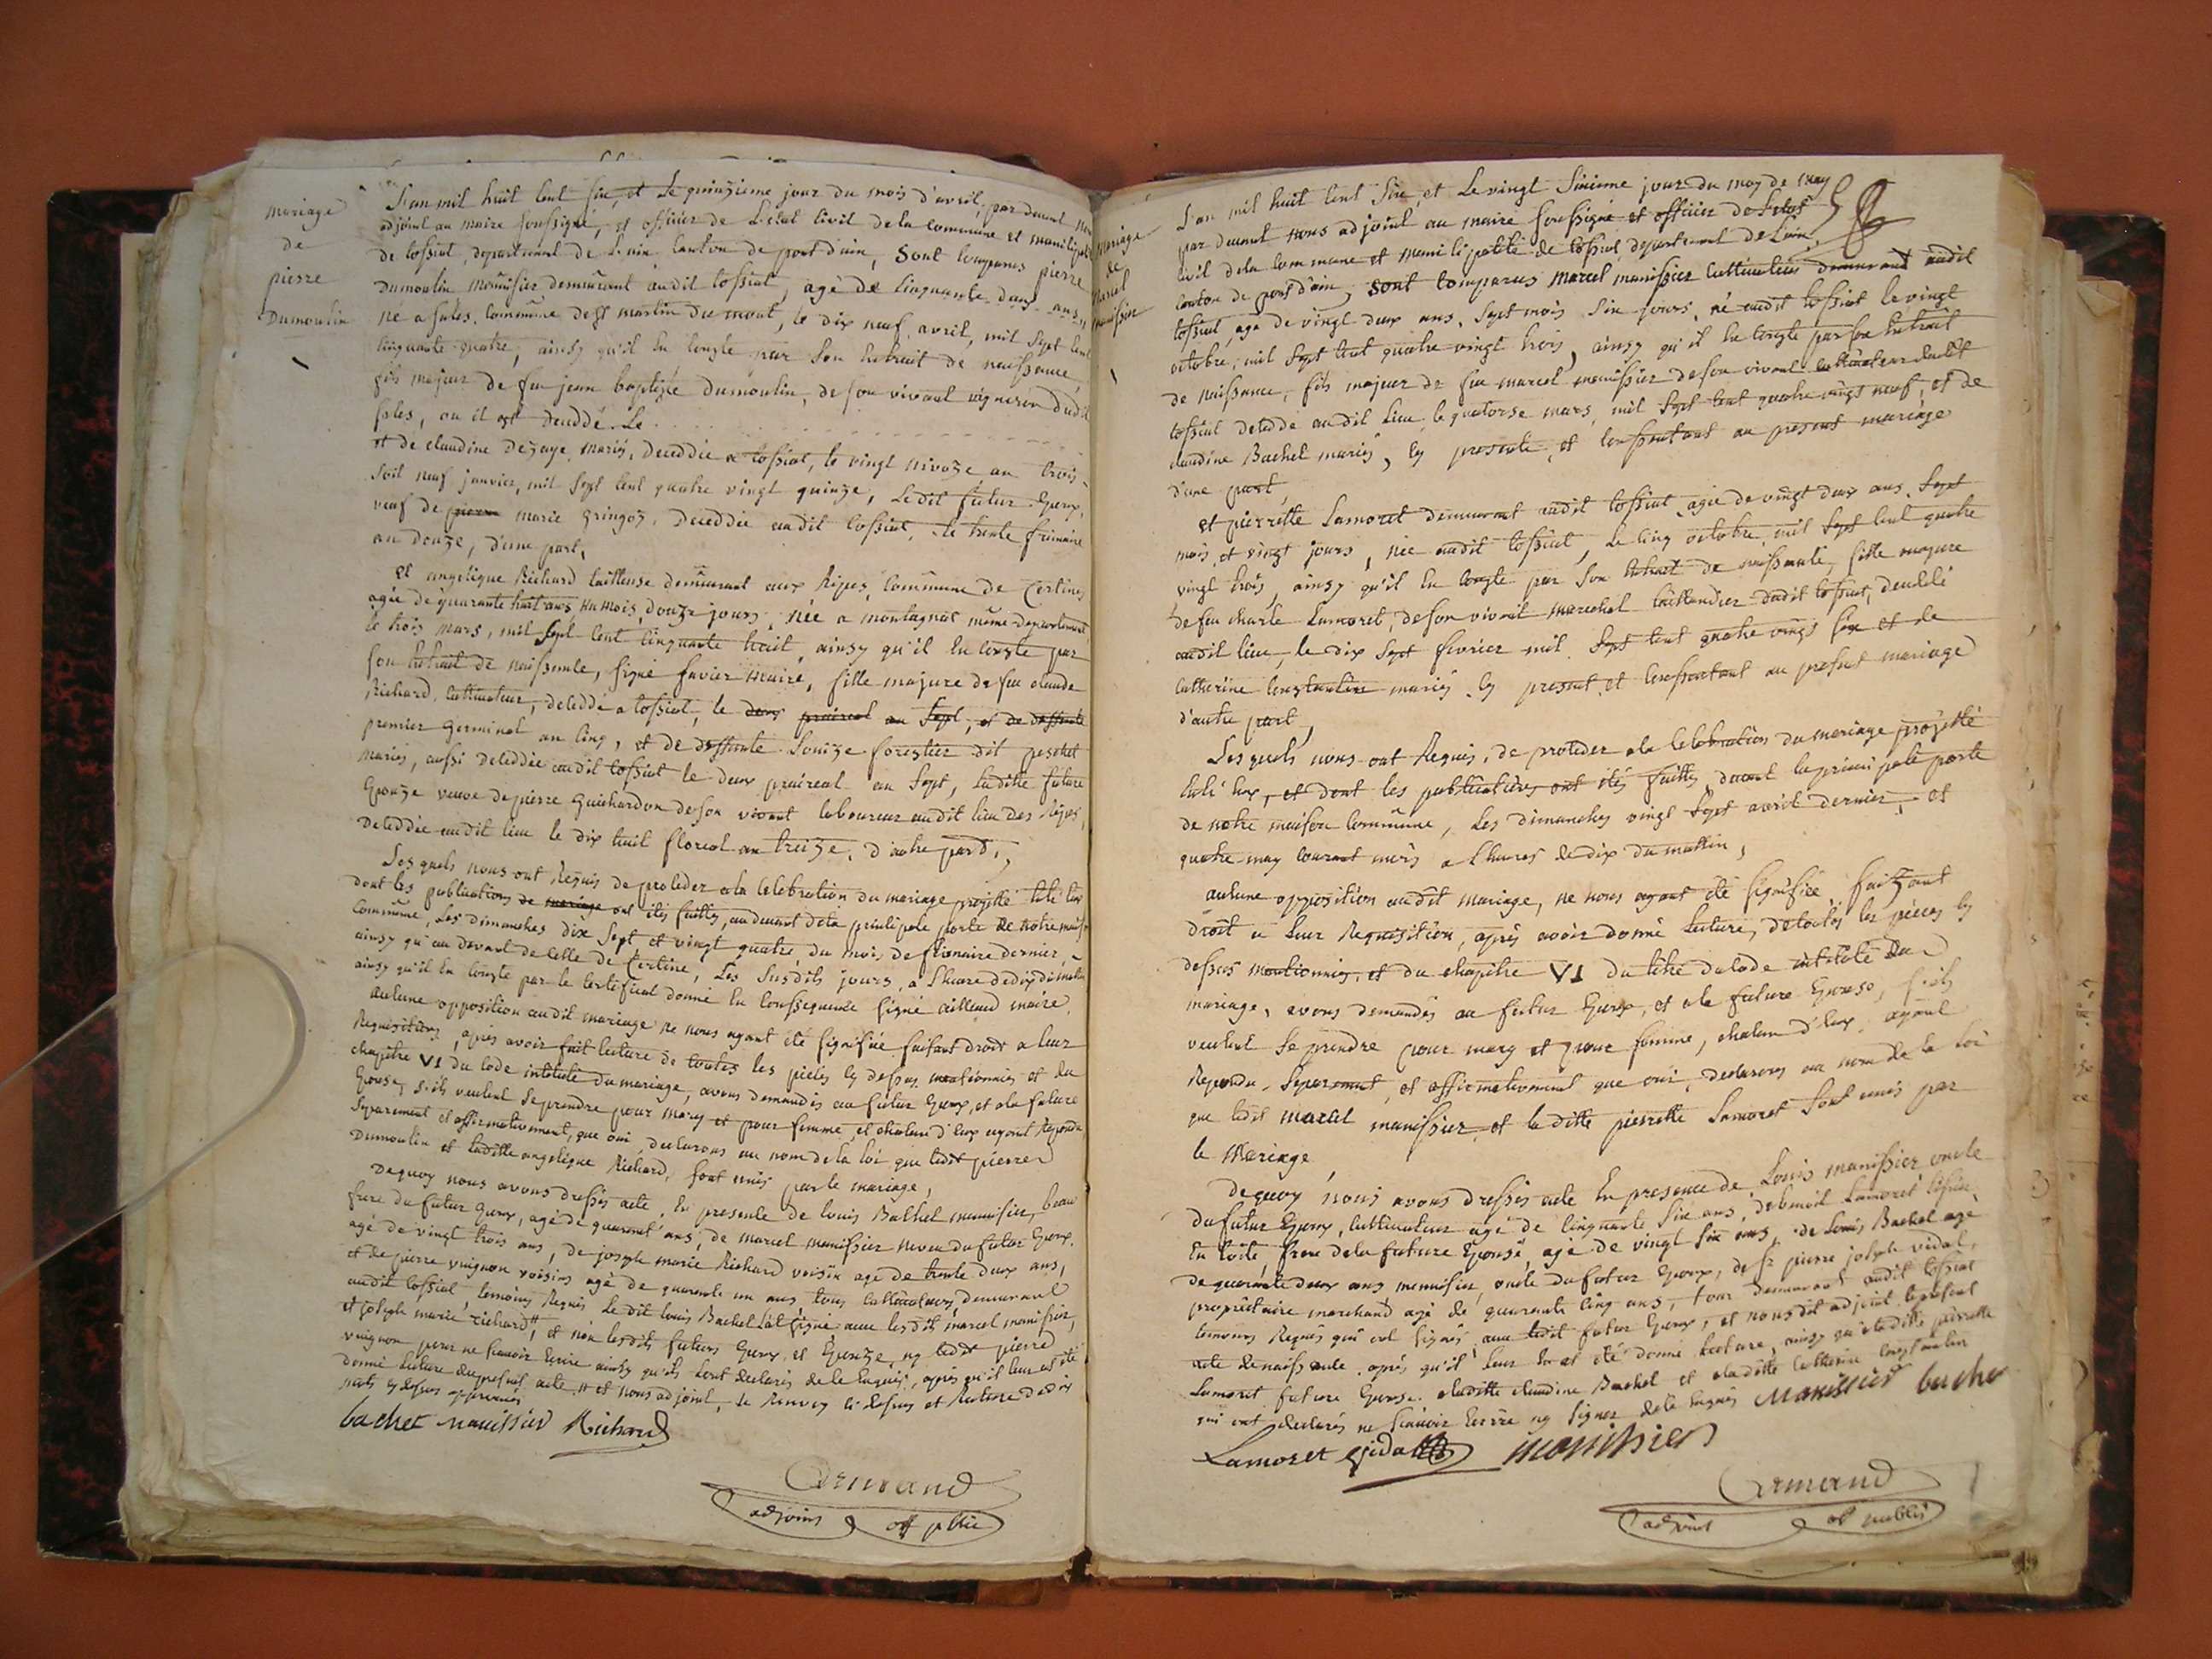 mariage
de
pierre
Dumoulin
L'an mil huit cent six, et le quinzieme jour du mois d'avril, par devant nous
adjoint au maire soussigné, et officier de l'etat civil de la commune et municipalité
de tossiat, departement de l'ain canton de pont d'ain, sont comparus pierre
Dumoulin menuisier demeurant audit tossiat, agé de cinquante deux ans,
né a sales, commune de st martin du mont, le dix neuf avril, mil sept cent
cinquante quatre, ainsy qu'il en conste par son extrait de naissance,
fils majeur de feu jean baptiste dumoulin, de son vivant vigneron dudit
sales, ou il est deceddé le
et de claudine mariés, deceddée a tossiat, le vingt nivoze an trois
soit neuf janvier, mil sept cent quatre vingt quinze, ledit futur epoux,
veuf de pierre marie gringoz, deceddée audit tossiat, le trente frimaire
an douze, d'une part,
et angelique Richard tailleuse demeurant aux Ripes, commune de Certines
agée de quarante huit ans un mois, douze jours, née a montagnat même departement
le trois mars, mil sept cent cinquante huit, ainsy qu'il en conste par
son extrait de naissance, signé favier maire, fille majeure de feu claude
Richard, cultivateur, deceddé a tossiat, le deux praireal an sept, et de deffunte
premier germinal an cinq, et de deffunte Louise forestier dit
mariés, aussi deceddée audit tossiat le deux praireal an sept, laditte future
Epouze veuve de pierre Guichardon de son vivant laboureur audit lieu des Ripes,
deceddée audit lieu le dix huit floreal an treize, d'autre part,
Les quels nous ont Requis de proceder a la celebration du mariage projetté entre eux
dont les publications de mariage ont étés faittes, au devant de la principale porte de notre maison
commune, Les dimanches dix sept et vingt quatre, du mois de dernier,
ainsy qu'au devant de celle de Certine, Les susdits jours, a l'heure de dix du matin
ainsy qu'il en conste par le certificat donné en conssequence signé aillaud maire,
aucune opposition audit mariage ne nous ayant été signifiée faisant droit a leur
Requisitions, après avoir fait lecture de toutes les pieces cy dessus mentionnées et du
chapitre VI du code intitulé du mariage, avons demandés au futur Epoux, et a la future
Epouse, s'ils veulent se prendre pour mary et pour femme, et chacun d'eux ayant Repondu
Separement et affirmativement, que oui, declarons au nom de la loi que ledit pierre
Dumoulin et laditte angelique Richard, sont unis par le mariage,
De quoy nous avons dressés acte, en presence de louis Bachel menuisier, beau
frere du futur Epoux, agé de quarent' ans, de marcel manissier neveu du futur Epoux,
agé de vingt trois ans, de joseph marie Richard voisin agé de trente deux ans,
et de pierre vuignon voisins agé de quarente un ans tous cultivateurs, demeurant
audit tossiat, temoins Requis Le dit louis Bachel l'at signé avec lesdits marcel manissier,
et joseph marie richard, et non lesdits futurs Epoux, et Epouze, ny ledit pierre
vuignon pour ne scavoir Ecrire ainsy qu'ils l'ont declarés de le Enquis, après qu'il leur at été
donné lecture du present acte et nous adjoint, le Renvoy ci dessus et Rature de dix
mots cy dessus approuvés
bachet manissier Richard
Armand
adjoint off plic
mariage
de
marcel
manissier
L'an mil huit cent six, et Le vingt sixieme jour du moy de may
par devant nous adjoint au maire soussigné et officier de l'etat
civil de la commune et municipalité de tossiat, departement de L'ain,
canton de pont d'ain, sont comparus marcel manissier cultivateur demeurant audit
tossiat, agé de vingt deux ans, sept mois six jours, né audit tossiat le vingt
octobre, mil sept cent quatre vingt trois, ainsy qu'il en conste par son extrait
de naissance, fils majeur de feu marcel manissier de son vivant cultivateur dudit
tossiat deceddé audit lieu, le quatorse mars, mil sept cent quatre vingt neuf, et de
claudine Bachel mariés, cy presente, et conssentant au present mariage
d'une part,
et pierrette Lamoret demeurant audit tossiat agée de vingt deux ans, sept
mois, et vingt jours, née audit tossiat, le cinq octobre mil sept cent quatre
vingt trois, ainsy qu'il en conste par son extrait de naissance, fille majeure
de feu charle Lamoret, de son vivant marechal taillandier dudit tossiat, deceddé
audit lieu, le dix sept fevrier mil sept cent quatre vingt six et de
catherine constantin mariés cy present, et conssentant au present mariage
d'autre part,
Les quels nous ont Requis, de proceder a la celebration du mariage projetté
entre eux, et dont les publications ont étés faittes, devant la principale porte
de notre maison commune, Les dimanches vingt sept avril dernier, et
quatre may courant mois a l'heure de dix du mattin,
aucune opposition audit mariage, ne nous ayant été signifiée, faizant
droit a leur Requisition, après avoir donné lecture, de touttes les pieces cy
dessus mentionnées, et du chapitre VI du titre du code intitulé du
mariage, avons demandés au futur Epoux, et a la future Epouse, s'ils
veulent se prendre pour mary et pour femme, chacun d'eux, ayant
Repondu, Separemant, et affirmativement que oui, declarons au nom de la loi
que ledit marcel manissier, et la ditte pierrette Lamoret sont unis par
le Mariage,
De quoy nous avons dressés acte En presence de Louis manissier oncle
du futur Epoux, cultivateur agé de cinquante six ans, de benoit Lamoret
frere de la future Epouse, agé de vingt six ans, de louis Bachel agé
de quarante deux ans menuisier, oncle du futur Epoux, de sr pierre joseph vidal,
propriétaire marchand agé de quarente cinq ans, tous demeurant audit tossiat
temoins Requis qui ont signés, avec ledit futur Epoux, et nous dit adjoint le present
acte de naissance après qu'il leur en et été donné lecture, ainsy qu'a laditte pierrette
Lamoret future Epouse, et laditte claudine Bachel et laditte catherine constantin
qui ont declarés ne scavoir Ecrire ny signer de le Enquis manissier bachet
Lamoret vidal manissier
Armand
adjoint of public